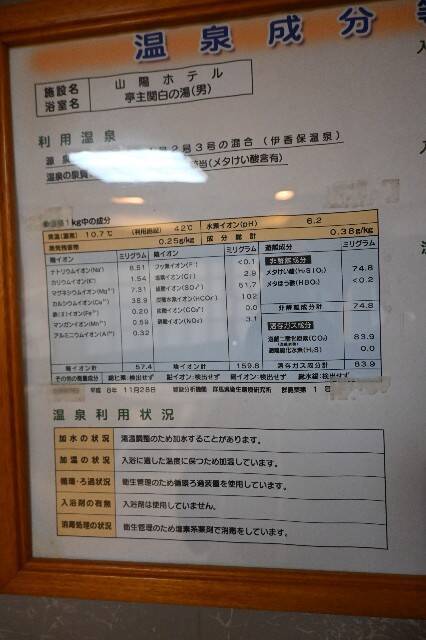 温泉成分等
施設名 山陽ホテル
浴室名 亭主関白の湯(男)
利用温泉
源 泉 2号3号の混合 (伊香保温泉)
温泉の泉質 (メタけい酸含有)
1kg中の成分
10.7℃ (利用施設) 42℃ 水素イオン(pH) 6.2
蒸発残留物 0.25g/kg 成分総計 0.38g/kg
陽イオン ミリグラム 陰イオン ミリグラム 遊離成分 ミリグラム
非解離成分
ナトリウムイオン(Na⁺) 8.51 フッ素イオン(F⁻) <0.1 メタけい酸(H₂SiO₃) 74.8
カリウムイオン(K⁺) 1.54 2.9 メタほう酸(HBO₂) <0.2
マグネシウムイオン(Mg²⁺) 7.31 51.7
カルシウムイオン(Ca²⁺) 38.9 102
0.20 0.0 非解離成分計 74.8
マンガンイオン(Mn²⁺) 0.59 3.1 溶存ガス成分
アルミニウムイオン(Al³⁺) 0.32 遊離二酸化炭素(CO₂) 83.9
遊離硫化水素(H₂S) 0.0
陽イオン計 57.4 陰イオン計 159.8 溶存ガス成分計 83.9
その他の微量成分 総ヒ素:検出せず 銅イオン:検出せず 鉛イオン:検出せず 総水銀:検出せず
平成 8年 11月28日
温泉利用状況
加水の状況 湯温調整のため加水することがあります。
加温の状況 入浴に適した温度に保つため加温しています。
循環・ろ過状況 衛生管理のため循環ろ過装置を使用しています。
入浴剤の有無 入浴剤は使用していません。
消毒処理の状況 衛生管理のため塩素系薬剤で消毒をしています。